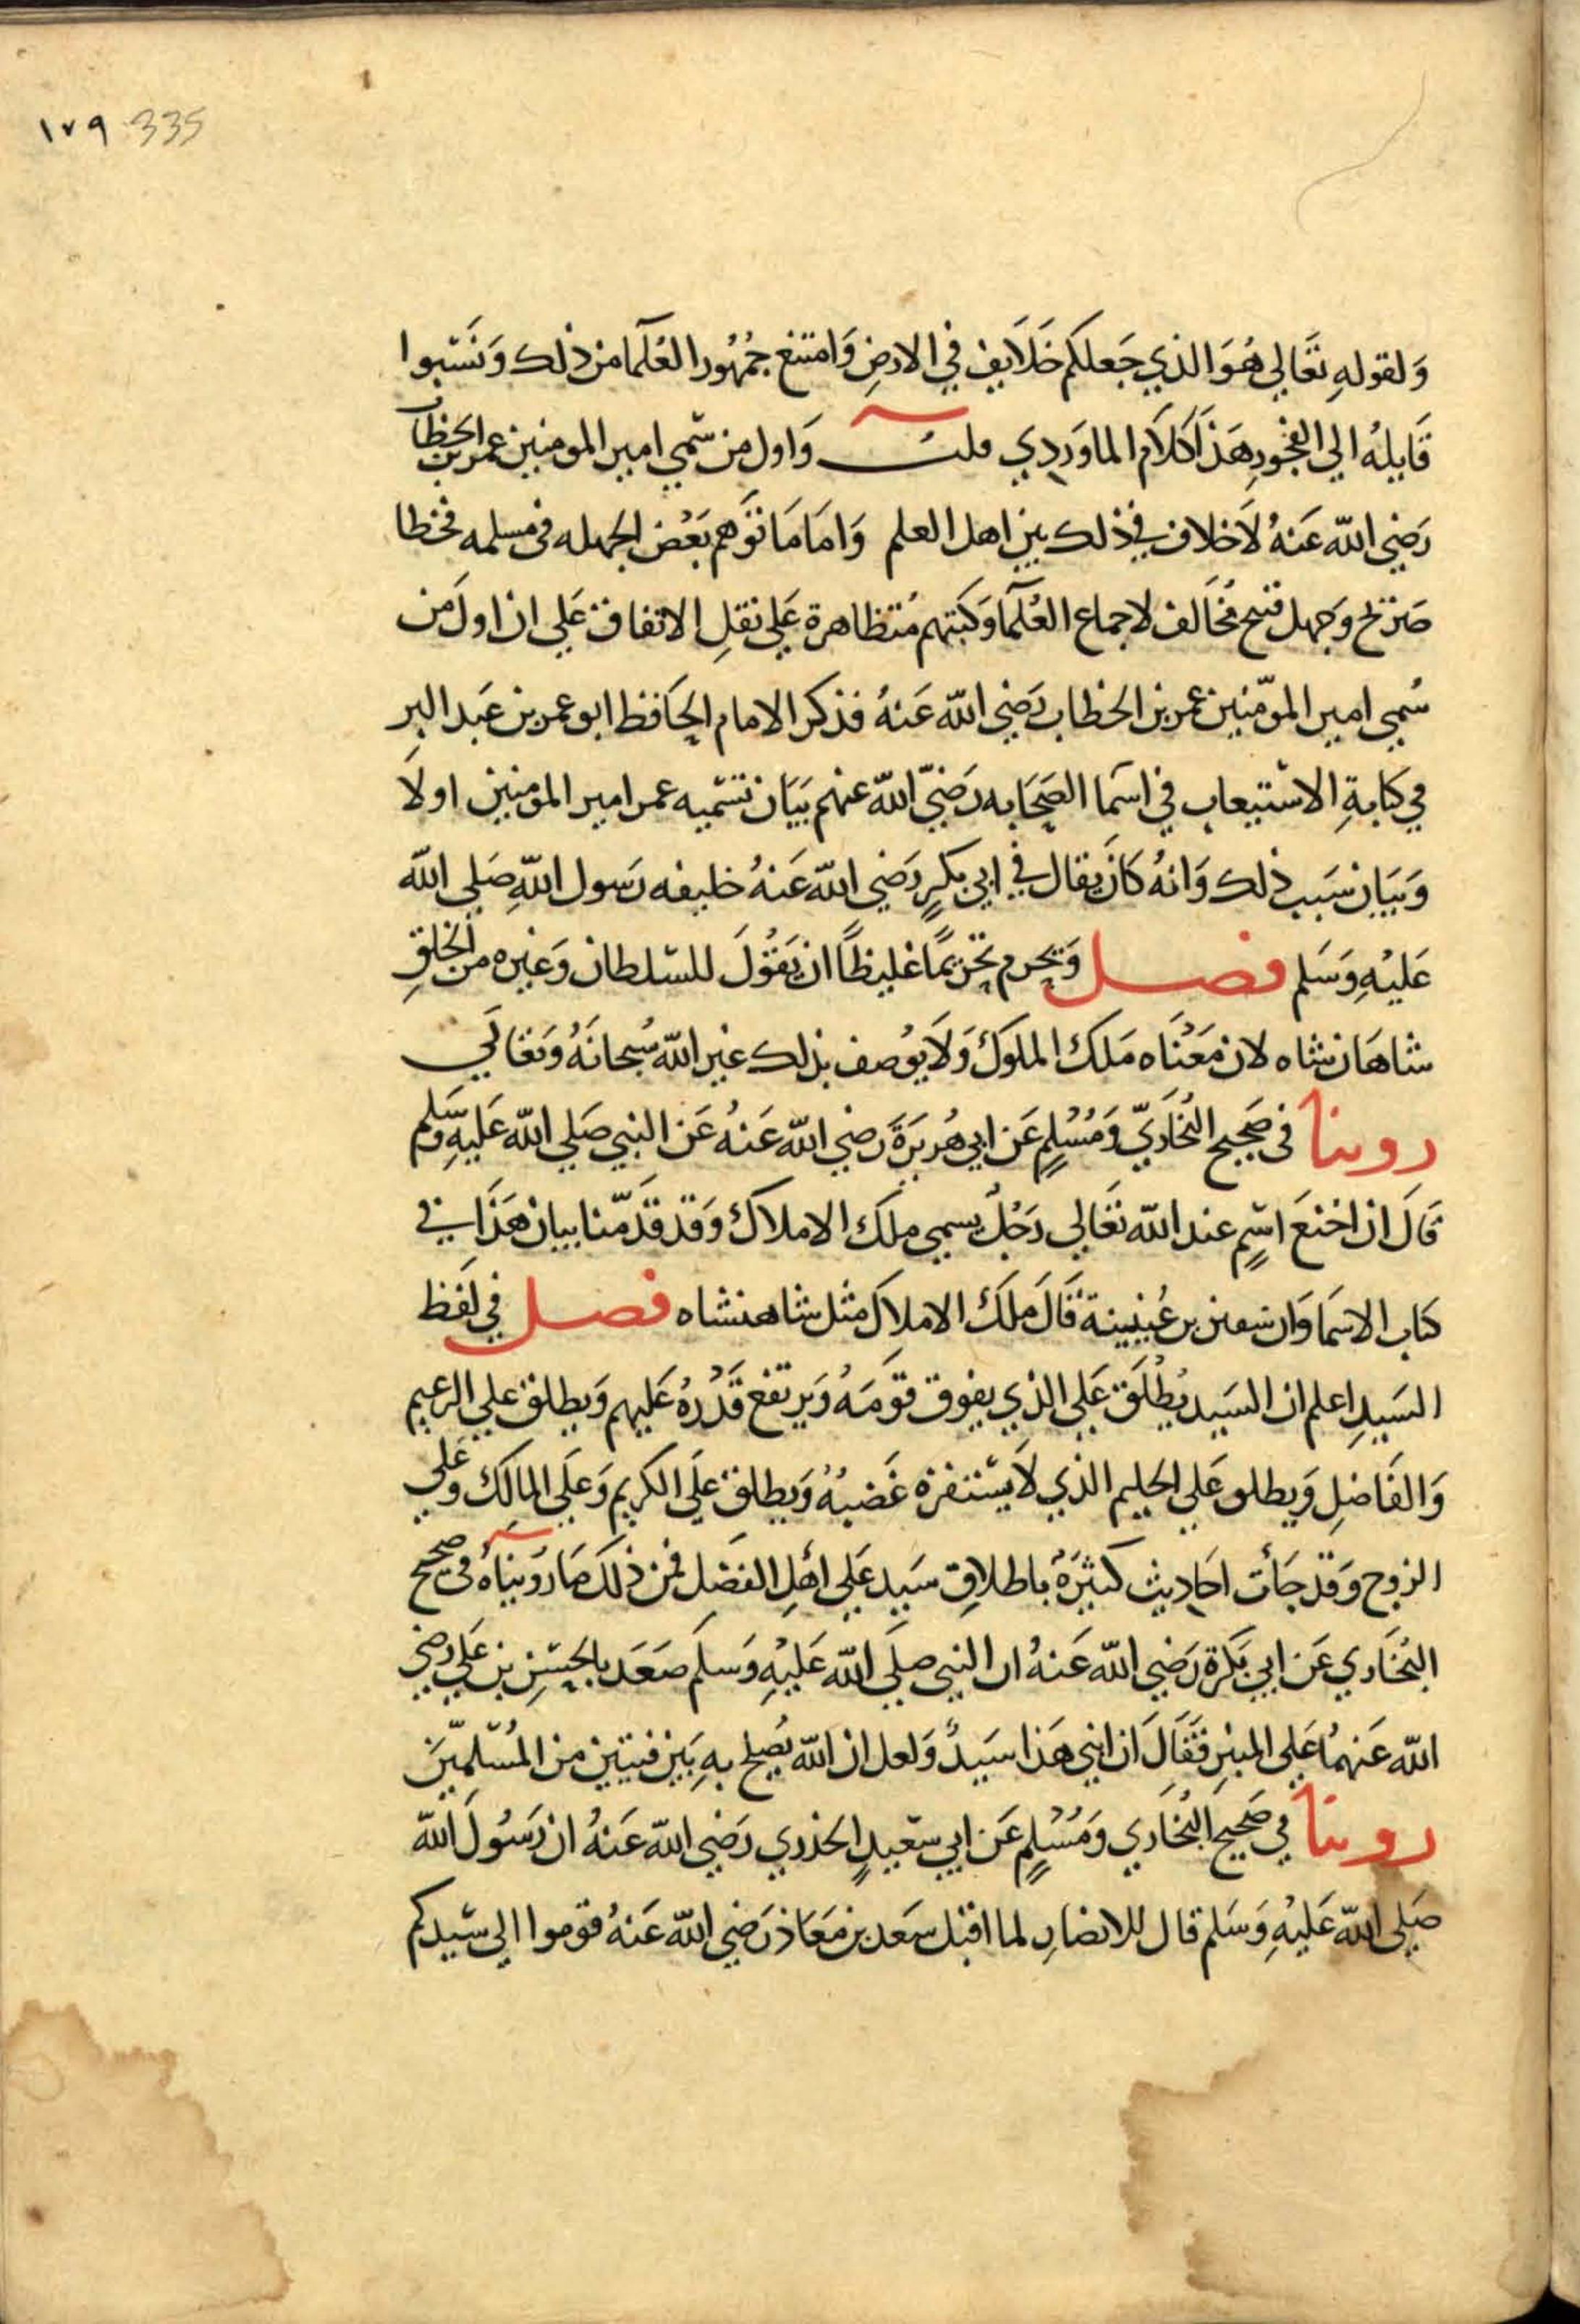 ١٧٩ 335
وَلقولهِ تعَالي هُوَ الذي جَعلكم خَلَايف في الارضِ وَامتنع جمُهُور العُلَمآ من ذلك وَنسَبوا
قَايلهُ الي الفجُورِ هَذا كلَام الماوَردِي قلت وَاول من سمّي امير المومنين عمر بن الخطاب
رَضي الله عَنهُ لَا خلاف في ذلك بين اهل العلم وَامَا مَا توَهم بَعْض الجهله في مسلمه فخطا
صَريح وَجهل قبيح مخَالف لاجماع العُلمآ وَكتبهم مُتظاهرة عَلي نقلِ الاتفاق عَلي ان اولَ من
سُمي امير الموّمنين عمر بن الخطاب رَضي الله عَنهُ فذكر الامام الحَافظ ابو عمر بن عَبد البرِ
في كتابهِ الاسْتيعاب في اسَما الصَحَابه رَضيَ الله عنهم بَيَان تسَميه عمر امير المومنين اولَا
وَبَيَان سَبب ذلك وَانهُ كانَ يقال في ابي بكرٍ رَضي الله عَنهُ خليفه رَسول اللهِ صَلي الله
عَليْهِ وَسَلم فصل وَيحرم تحريمًا غليظًا ان يَقُولَ للسّلطان وَغيره من الخلقِ
شاهَان شاه لان مَعْنَاه مَلك الملوك وَلَا يوُصف بذلك غير الله سُبحانَهُ وَتعَالَي
روينا في صَحيح البُخَاريّ وَمُسْلمٍ عَن ابي هُريرَةَ رضي الله عَنهُ عَن النبي صَلي الله عَليهِ وَسَلم
قالَ ان اخنعَ اسْمٍ عند الله تعَالي رَجُلٌ يسمي ملك الاملاك وَقد قدَّمنا بيان هَذا في
كتاب الاسمَا وَان سفين بن عُيَيينة قَالَ ملكَ الاملاك مثل شاهنشاه فصل في لَفظ
السَيدِ اعلم ان السَيد يُطلَق عَلي الذي يفوق قوَمَهُ وَيرتفع قَدْرهُ عَليهم وَيطلق علي الزعيم
وَالفَاضلِ وَيطلق عَلي الحليم الذي لَا يسْتفزه غَضبُهُ وَيطلق عَلَي الكريم وَعَلَي المالك وَعَلي
الزوج وَقد جَأت احَاديث كثيرَةٌ باطلاقِ سَيد عَلي اهْلِ الفَضل فمن ذلك مَا رَويناهُ في صحيح
البُخَاري عَن ابي بَكرة رَضي الله عَنهُ ان النبي صلَي الله عَليْهِ وَسلم صَعَد بالحسَنِ بن عَلي رضي
الله عَنهمُا عَلي المنبرِ فَقَالَ ان ابني هَذا سَيدٌ وَلعل ان الله يُصِلح بهِ بَين فئتين من المُسْلمينَ
روينا في صَحيح البُخَاري وَمُسْلمٍ عَن ابي سعَيدٍ الخدري رَضي الله عَنهُ ان رَسُولَ الله
صَلي الله عَليْهِ وَسَلم قال للانصَارِ لما اقبَل سَعد بن مَعَاذ رَضي الله عَنهُ قوموا الي سَيدكم